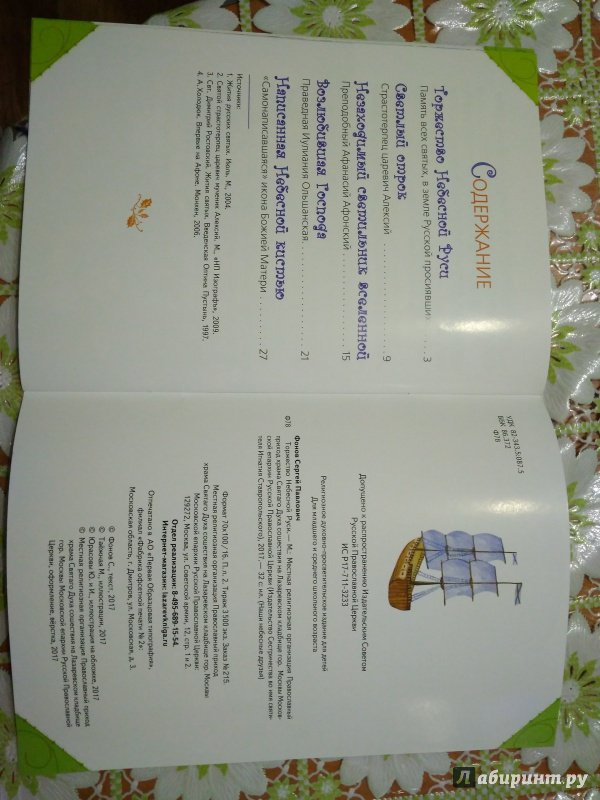 СОДЕРЖАНИЕ
Торжество Небесной Руси
Память всех святых, в земле Русской просиявших 3
Светлый отрок
Страстотерпец царевич Алексий 9
Незаходимый светильник вселенной
Преподобный Афанасий Афонский 15
Возлюбившая Господа
Праведная Иулиания Ольшанская 21
Написанная Небесной кистью
«Самонаписавшаяся» икона Божией Матери 27
Источники:
1. Жития русских святых. Июль. М., 2004.
2. Святой страстотерпец царевич мученик Алексий. М., «НП Изограф», 2009.
3. Свт. Димитрий Ростовский. Жития святых. Введенская Оптина Пустынь, 1997.
4. А. Холодюк. Впервые на Афоне. Мюнхен, 2006.
УДК 82-343.5:087.5
ББК 86.372
Ф78
Допущено к распространению Издательским Советом
Русской Православной Церкви
ИС Р17-711-3233
Религиозное духовно-просветительское издание для детей
Для младшего и среднего школьного возраста
Фонов Сергей Павлович
Ф78 Торжество Небесной Руси. — М.: Местная религиозная организация Православный
приход храма Святаго Духа сошествия на Лазаревском кладбище гор. Москвы Москов-
ской епархии Русской Православной Церкви (Издательство Сестричества во имя святи-
теля Игнатия Ставропольского), 2017. — 32 с. ил. (Наши небесные друзья)
Формат 70×100 /16. П. л. 2. Тираж 3500 экз. Заказ № 215.
Местная религиозная организация Православный приход
храма Святаго Духа сошествия на Лазаревском кладбище гор. Москвы
Московской епархии Русской Православной Церкви:
129272, Москва, ул. Советской армии, 12, стр. 1 и 2.
Отдел реализации: 8-495-689-15-54.
Интернет-магазин: lazarevkniga.ru
Отпечатано в АО «Первая Образцовая типография»,
филиал «Фабрика офсетной печати № 2»:
Московская область, г. Дмитров, ул. Московская, д. 3.
© Фонов С., текст, 2017
© Таёжная М., иллюстрации, 2017
© Юрасовы Ю. и И., иллюстрация на обложке, 2017
© Местная религиозная организация Православный приход
храма Святаго Духа сошествия на Лазаревском кладбище
гор. Москвы Московской епархии Русской Православной
Церкви, оформление, вёрстка, 2017
Лабиринт.ру